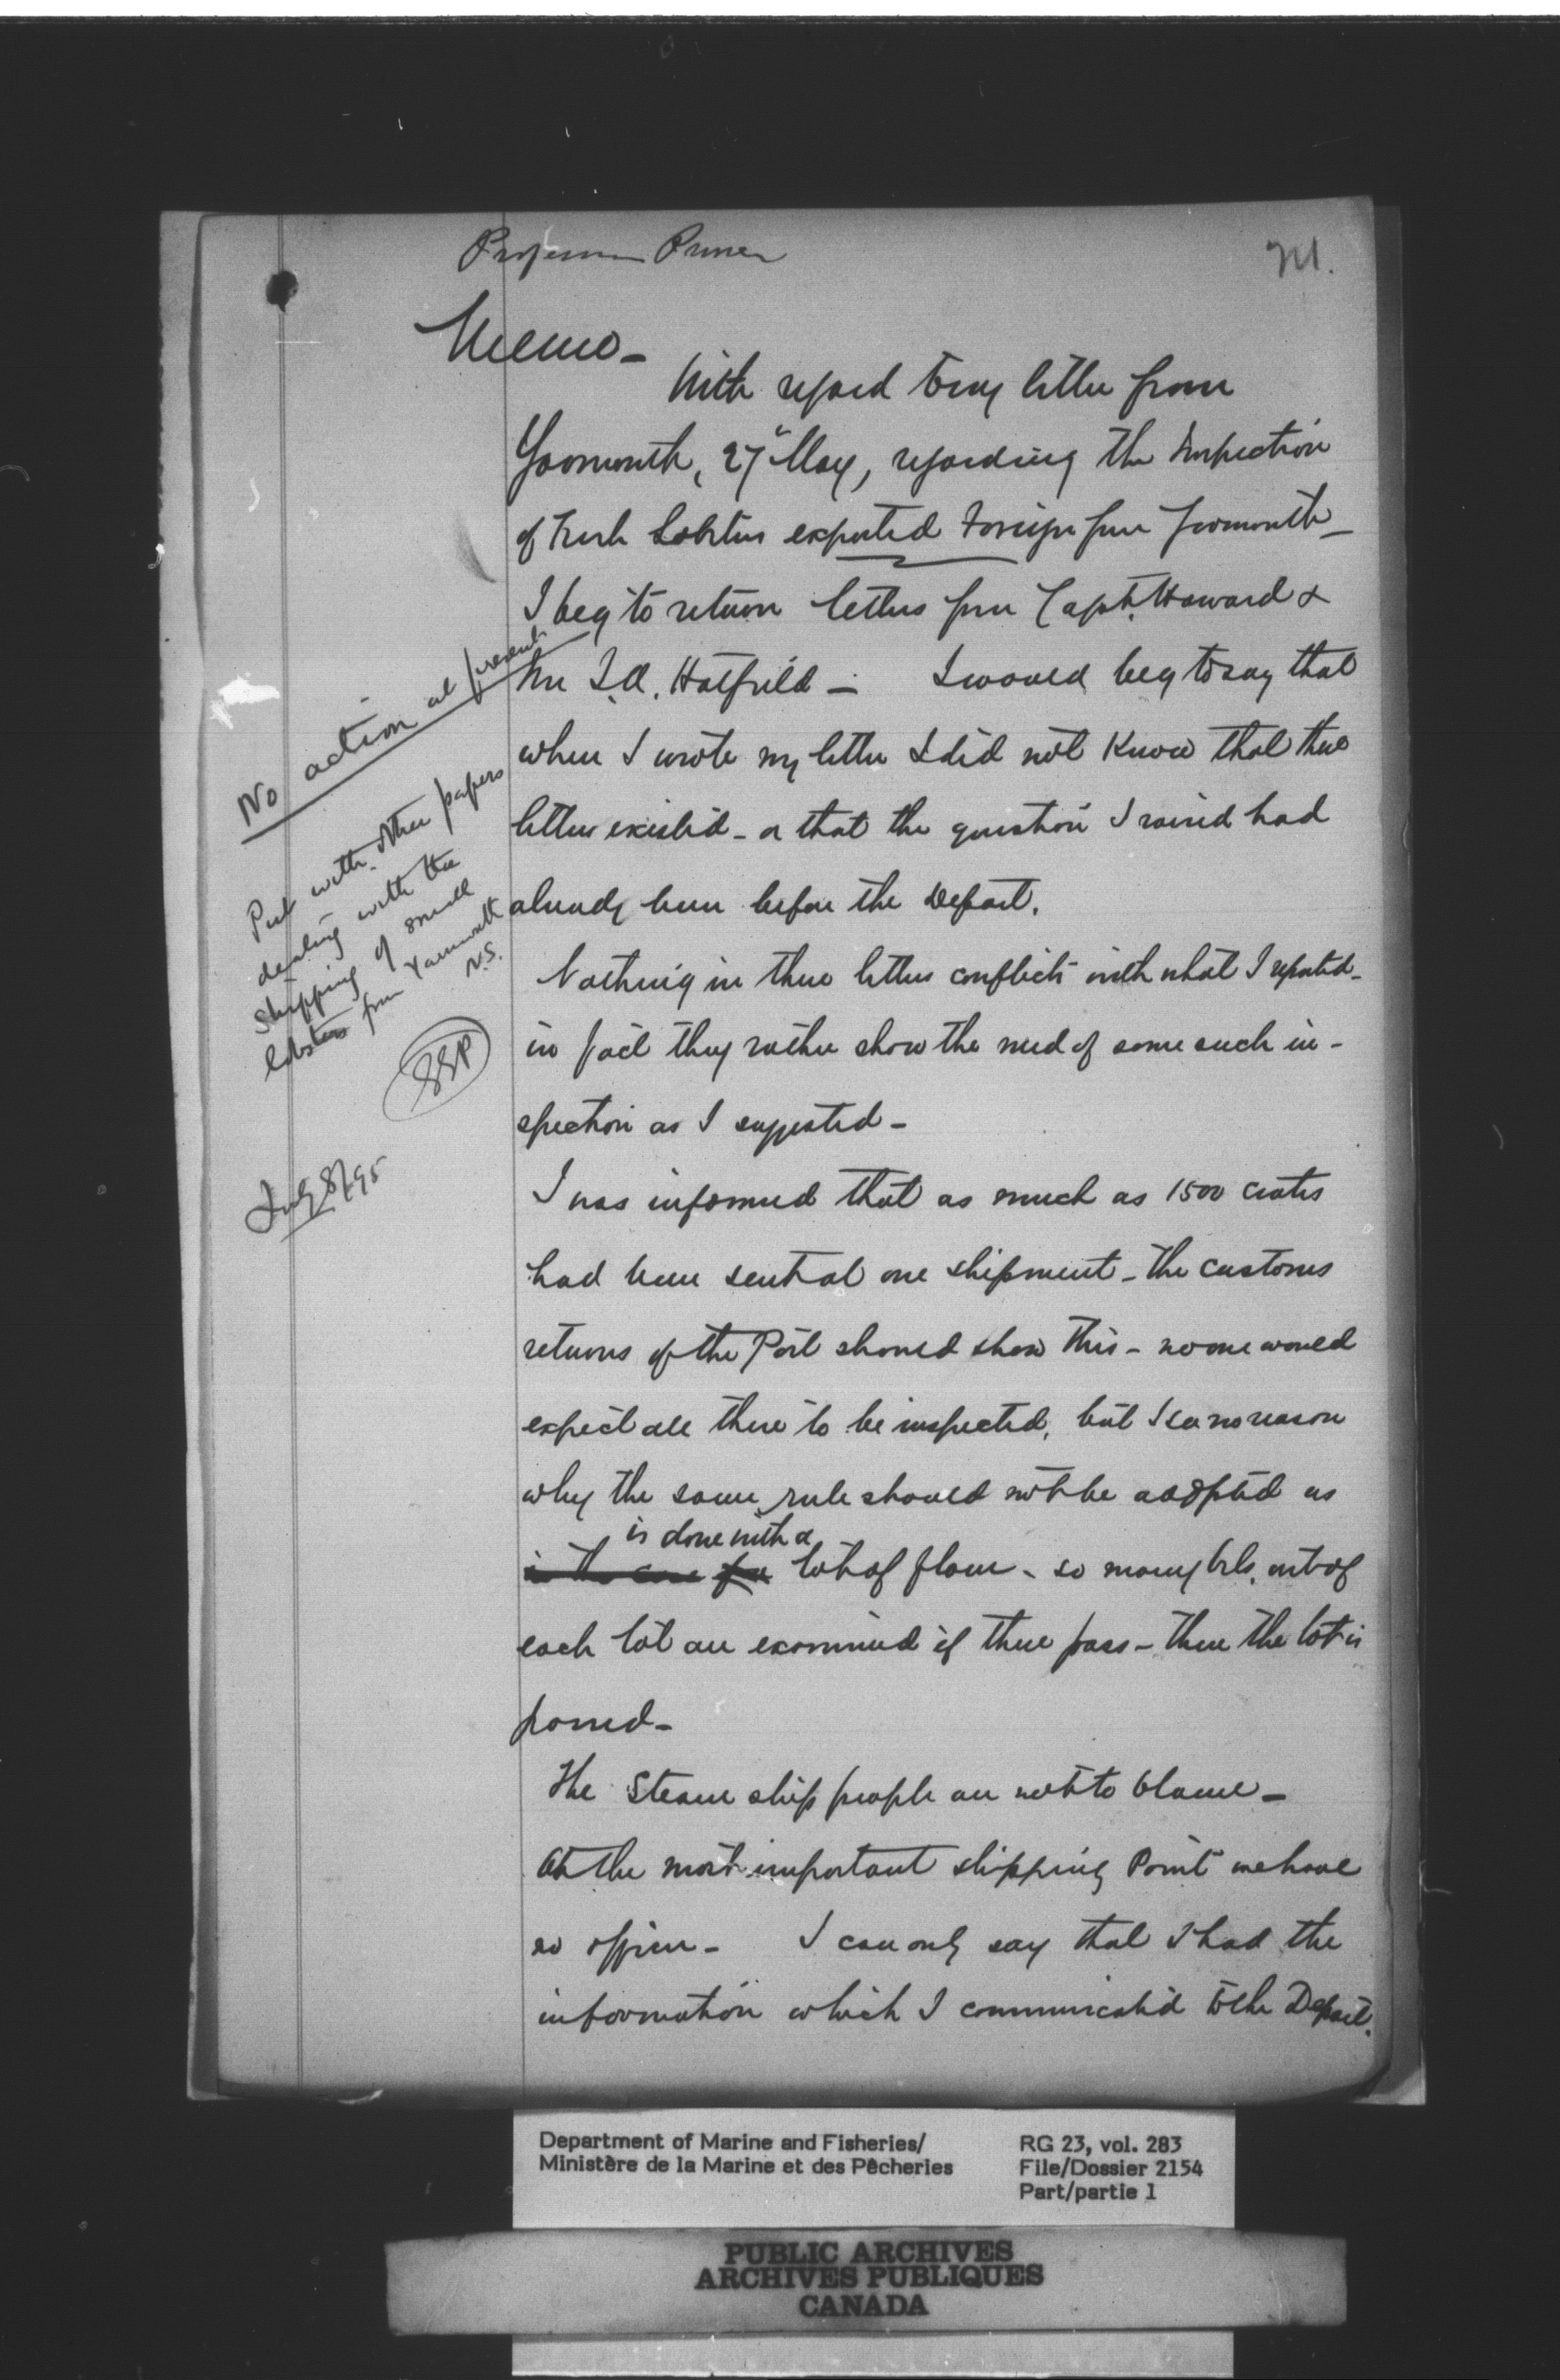 Professor Prince
Memo -
With regard to my letter from
Yarmouth, 27" May, regarding the Inspection
of Fresh Lobsters exported Foreign from Yarmouth -
I beg to return letters from Capt. Howard &
Mr J.A. Hatfield - I would beg to say that
when I wrote my letter I did not know that these
letters existed - or that the question I raised had
already been before the Depart.
Nothing in these letters conflicts with what I reported -
in fact they rather show the need of some such in-
spection as I suggested -
I was informed that as much as 1500 crates
had been sent at one shipment - the customs
returns of the Port should show this - no one would
expect all these to be inspected, but I see no reason
why the same rule should not be adopted as
is done with a
in the case of a lot of flour - so many brls. out of
each lot are examined if these pass - then the lot is
passed -
The Steam ship people are not to blame -
At the most important shipping Point we have
no officer - I can only say that I had the
information which I communicated to the Depart.
No action at present
Put with other papers
dealing with the
shipping of small
lobsters from Yarmouth
N.S.
July 8/95
Department of Marine and Fisheries/
Ministère de la Marine et des Pêcheries
RG 23, vol. 283
File/Dossier 2154
Part/partie 1
PUBLIC ARCHIVES
ARCHIVES PUBLIQUES
CANADA